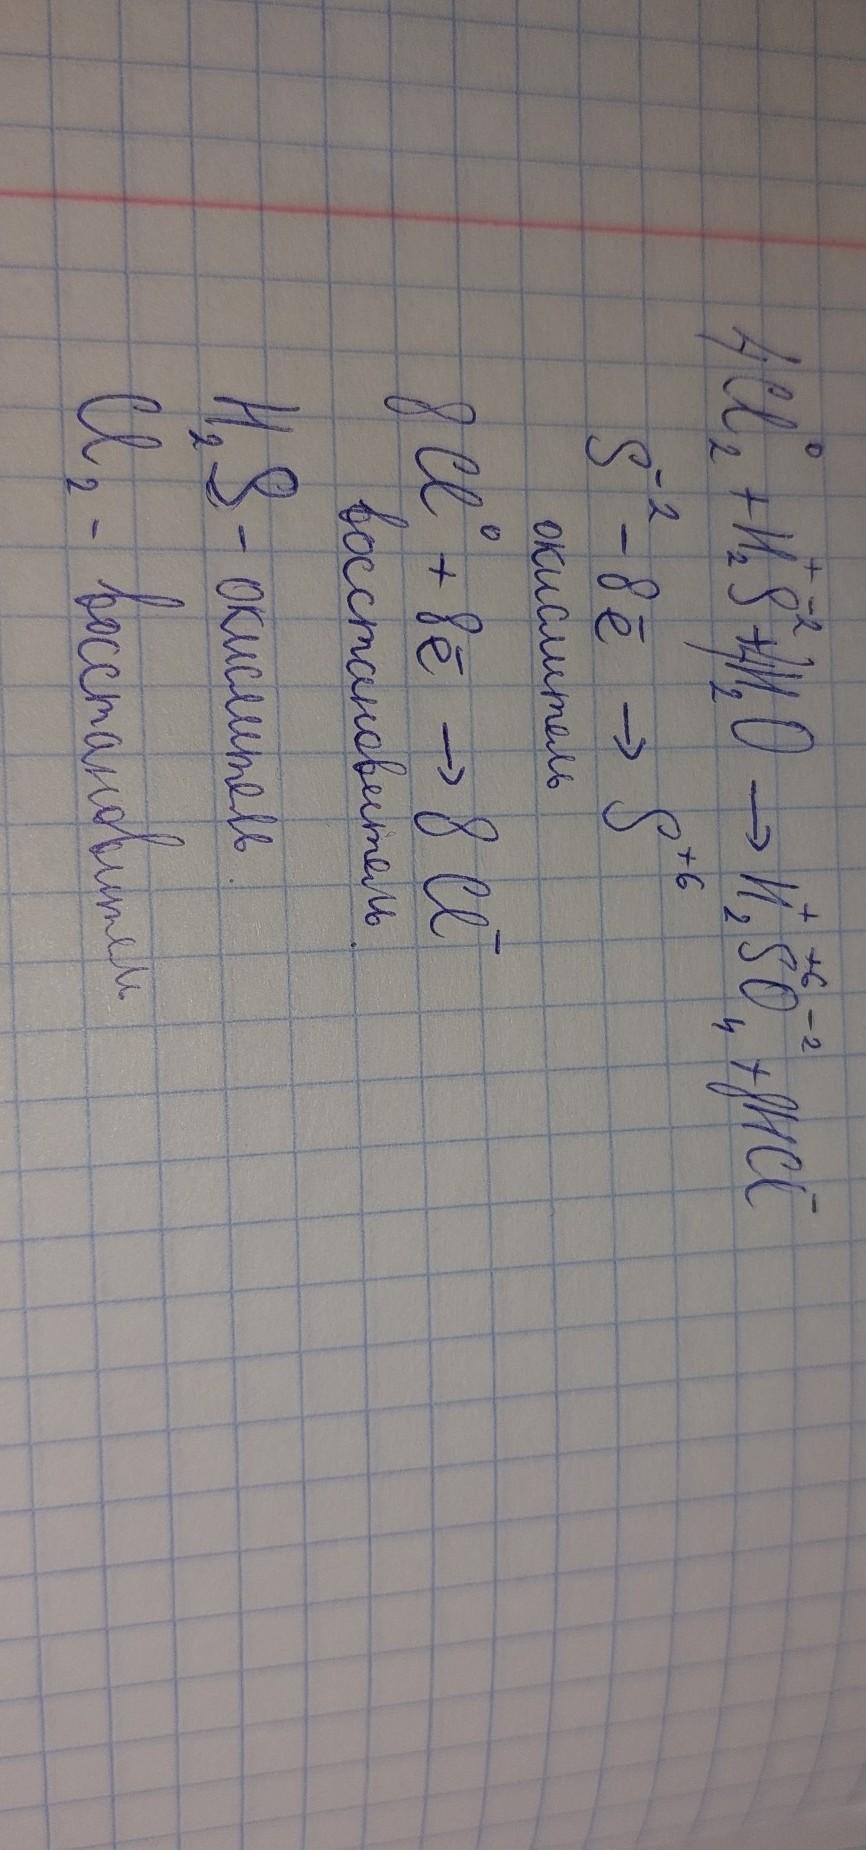 4Cl₂⁰ + H₂⁺S⁻² + 4H₂O → H₂⁺S⁺⁶O₄⁻² + 8HCl⁻
S⁻² - 8ē → S⁺⁶
окислитель
8Cl⁰ + 8ē → 8Cl⁻
восстановитель
H₂S - окислитель
Cl₂ - восстановитель